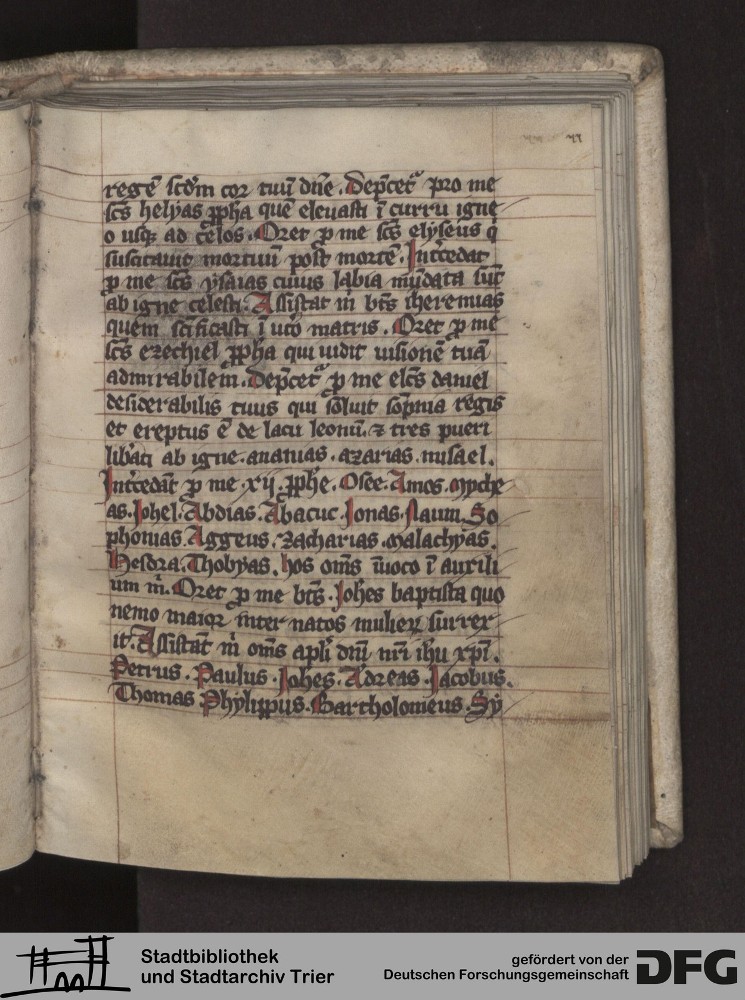 regē scd̄m cor tuū dn̄e. Dep̄cetᷓ pro me
scs̄ helyas ꝓph̄a quē eleuasti ī curru igne
o usqꝫ ad celos. Oret ꝑ me scs̄ elyseus q̇
suscitauit mortuū post mortē. Int̄cedat
ꝑ me scs̄ ysaias cuius labia mūdata sūt
ab igne celesti. Assistat m̄ bts̄ iheremias
quem scīficasti ī ut̄o matris. Oret ꝑ me
scs̄ ezechiel ꝓph̄a qui uidit uisionē tuā
admirabilem. Dep̄cetᷓ ꝑ me elcs̄ daniel
desiderabilis tuus qui soluit sōpnia regis
et ereptus ē de lacu leonū. ⁊ tres pueri
lib̄ati ab igne. ananias. azarias. misael.
Int̄cedāt ꝑ me xij. ꝓph̄e. Osee. Amos. Myche
as. Johel. Abdias. Abacuc. Jonas. Naum. So
phonias. Aggeus. Zacharias. Malachyas.
Hesdra. Thobyas. hos om̄s īuoco ī auxili
um m̄. Oret ꝑ me bts̄. Joh̄es baptista quo
nemo maior inter natos mulieꝝ surrex
it. Assistāt m̄ om̄s apl̄i dn̄i nr̄i ih̄u xp̄i.
Petrus. Paulus. Joh̄es. Ādreas. Jacobus.
Thomas Phylippus. Bartholomeus. Sy
Stadtbibliothek
und Stadtarchiv Trier
gefördert von der
Deutschen Forschungsgemeinschaft
DFG